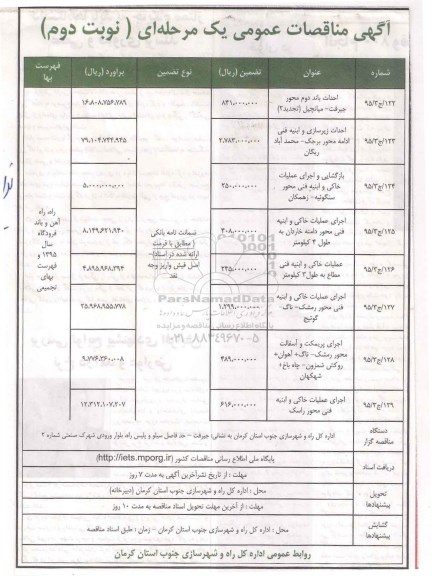 آگهی مناقصات عمومی یک مرحله‌ای ( نوبت دوم)
شماره
عنوان
تضمین (ریال)
نوع تضمین
برآورد (ریال)
فهرست بها
۹۵/۳/ج/۱۲۲
احداث باند دوم محور
جیرفت- میانچیل (تجدید۲)
۸۳۱،۰۰۰،۰۰۰
۱۶،۸۰۸،۷۵۶،۷۸۹
۹۵/۳/ج/۱۲۳
احداث زیرسازی و ابنیه فنی
ادامه محور برجک- محمد آباد
ریگان
۲،۷۸۳،۰۰۰،۰۰۰
۷۹،۱۰۴،۷۴۳،۹۲۵
۹۵/۳/ج/۱۲۴
بازگشایی و اجرای عملیات
خاکی و ابنیه فنی محور
سنگوئیه- زهمکان
۲۵۰،۰۰۰،۰۰۰
۵،۰۰۰،۰۰۰،۰۰۰
۹۵/۳/ج/۱۲۵
اجرای عملیات خاکی و ابنیه
فنی محور دامنه خاردان به
طول ۴ کیلومتر
۴۰۸،۰۰۰،۰۰۰
۸،۱۴۹،۶۲۱،۹۴۰
۹۵/۳/ج/۱۲۶
عملیات خاکی و ابنیه فنی
مطاع به طول۳ کیلومتر
۲۴۵،۰۰۰،۰۰۰
۴،۸۹۵،۹۶۸،۲۹۴
۹۵/۳/ج/۱۲۷
اجرای عملیات خاکی و ابنیه
فنی محور رمشک- ناگ-
گوتیچ
۱،۲۹۹،۰۰۰،۰۰۰
۲۵،۹۶۸،۹۵۵،۷۷۸
۹۵/۳/ج/۱۲۸
اجرای پریمکت و آسفالت
محور رمشک- ناگ+ آهوان+
روکش شمزون- چاه باغ+
شهکهان
۴۸۹،۰۰۰،۰۰۰
۹،۷۷۶،۳۶۰،۰۰۸
۹۵/۳/ج/۱۲۹
اجرای عملیات خاکی و ابنیه
فنی محور راسک
۶۱۶،۰۰۰،۰۰۰
۱۲،۳۱۲،۱۰۷،۲۰۷
ضمانت نامه بانکی
( مطابق با فرمت
ارائه شده در اسناد)-
اصل فیش واریز وجه
نقد
راه، راه
آهن و باند
فرودگاه
سال
۱۳۹۵ و
فهرست
بهای
تجمیعی
ParsNamadData
پایگاه اطلاع رسانی مناقصه و مزایده
۰۲۱-۸۸۳۴۹۶۷۰-۵
دستگاه مناقصه گزار
اداره کل راه و شهرسازی جنوب استان کرمان به نشانی: جیرفت – حد فاصل سیلو و پلیس راه، بلوار ورودی شهرک صنعتی شماره ۲
دریافت اسناد
پایگاه ملی اطلاع رسانی مناقصات کشور (http://iets.mporg.ir)
مهلت : از تاریخ نشرآخرین آگهی به مدت ۷ روز
تحویل پیشنهادها
محل : اداره کل راه و شهرسازی جنوب استان کرمان (دبیرخانه)
مهلت : از آخرین مهلت تحویل اسناد مناقصه به مدت ۱۰ روز
گشایش پیشنهادها
محل : اداره کل راه و شهرسازی جنوب استان کرمان – زمان : طبق اسناد مناقصه
روابط عمومی اداره کل راه و شهرسازی جنوب استان کرمان